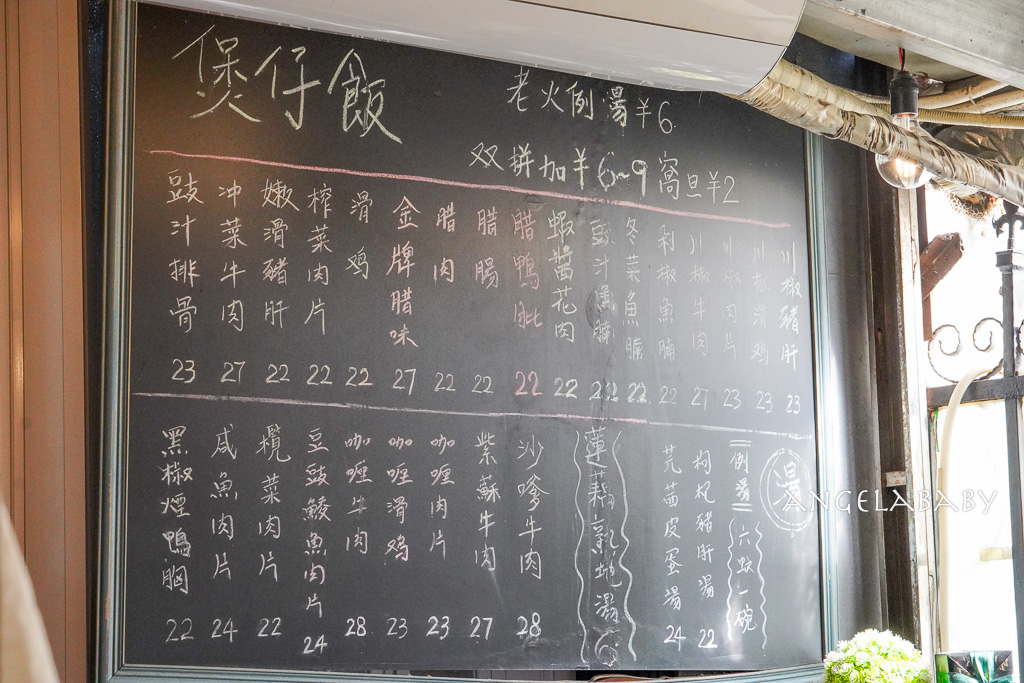 煲仔飯
老火例湯¥6
双拼加¥6~9 窩旦¥2
豉汁排骨 23
冲菜牛肉 27
嫩滑豬肝 22
榨菜肉片 22
滑鸡 22
金牌腊味 27
腊肉 22
腊腸 22
腊鴨 22
蝦醬花肉 22
豉汁魚腩 22
冬菜魚腩 22
剁椒魚腩 22
川椒牛肉 27
川椒肉片 23
川椒滑鸡 23
川椒豬肝 23
黑椒煙鴨胸 22
咸魚肉片 24
欖菜肉片 22
豆豉鯪魚肉片 24
咖喱牛肉 28
咖喱滑鸡 23
咖喱肉片 23
紫蘇牛肉 27
沙嗲牛肉 28
蓮藕 湯 6
芫茜皮蛋湯 24
枸杞豬肝湯 22
例湯
六蚊一碗
湯
ANGELABABY